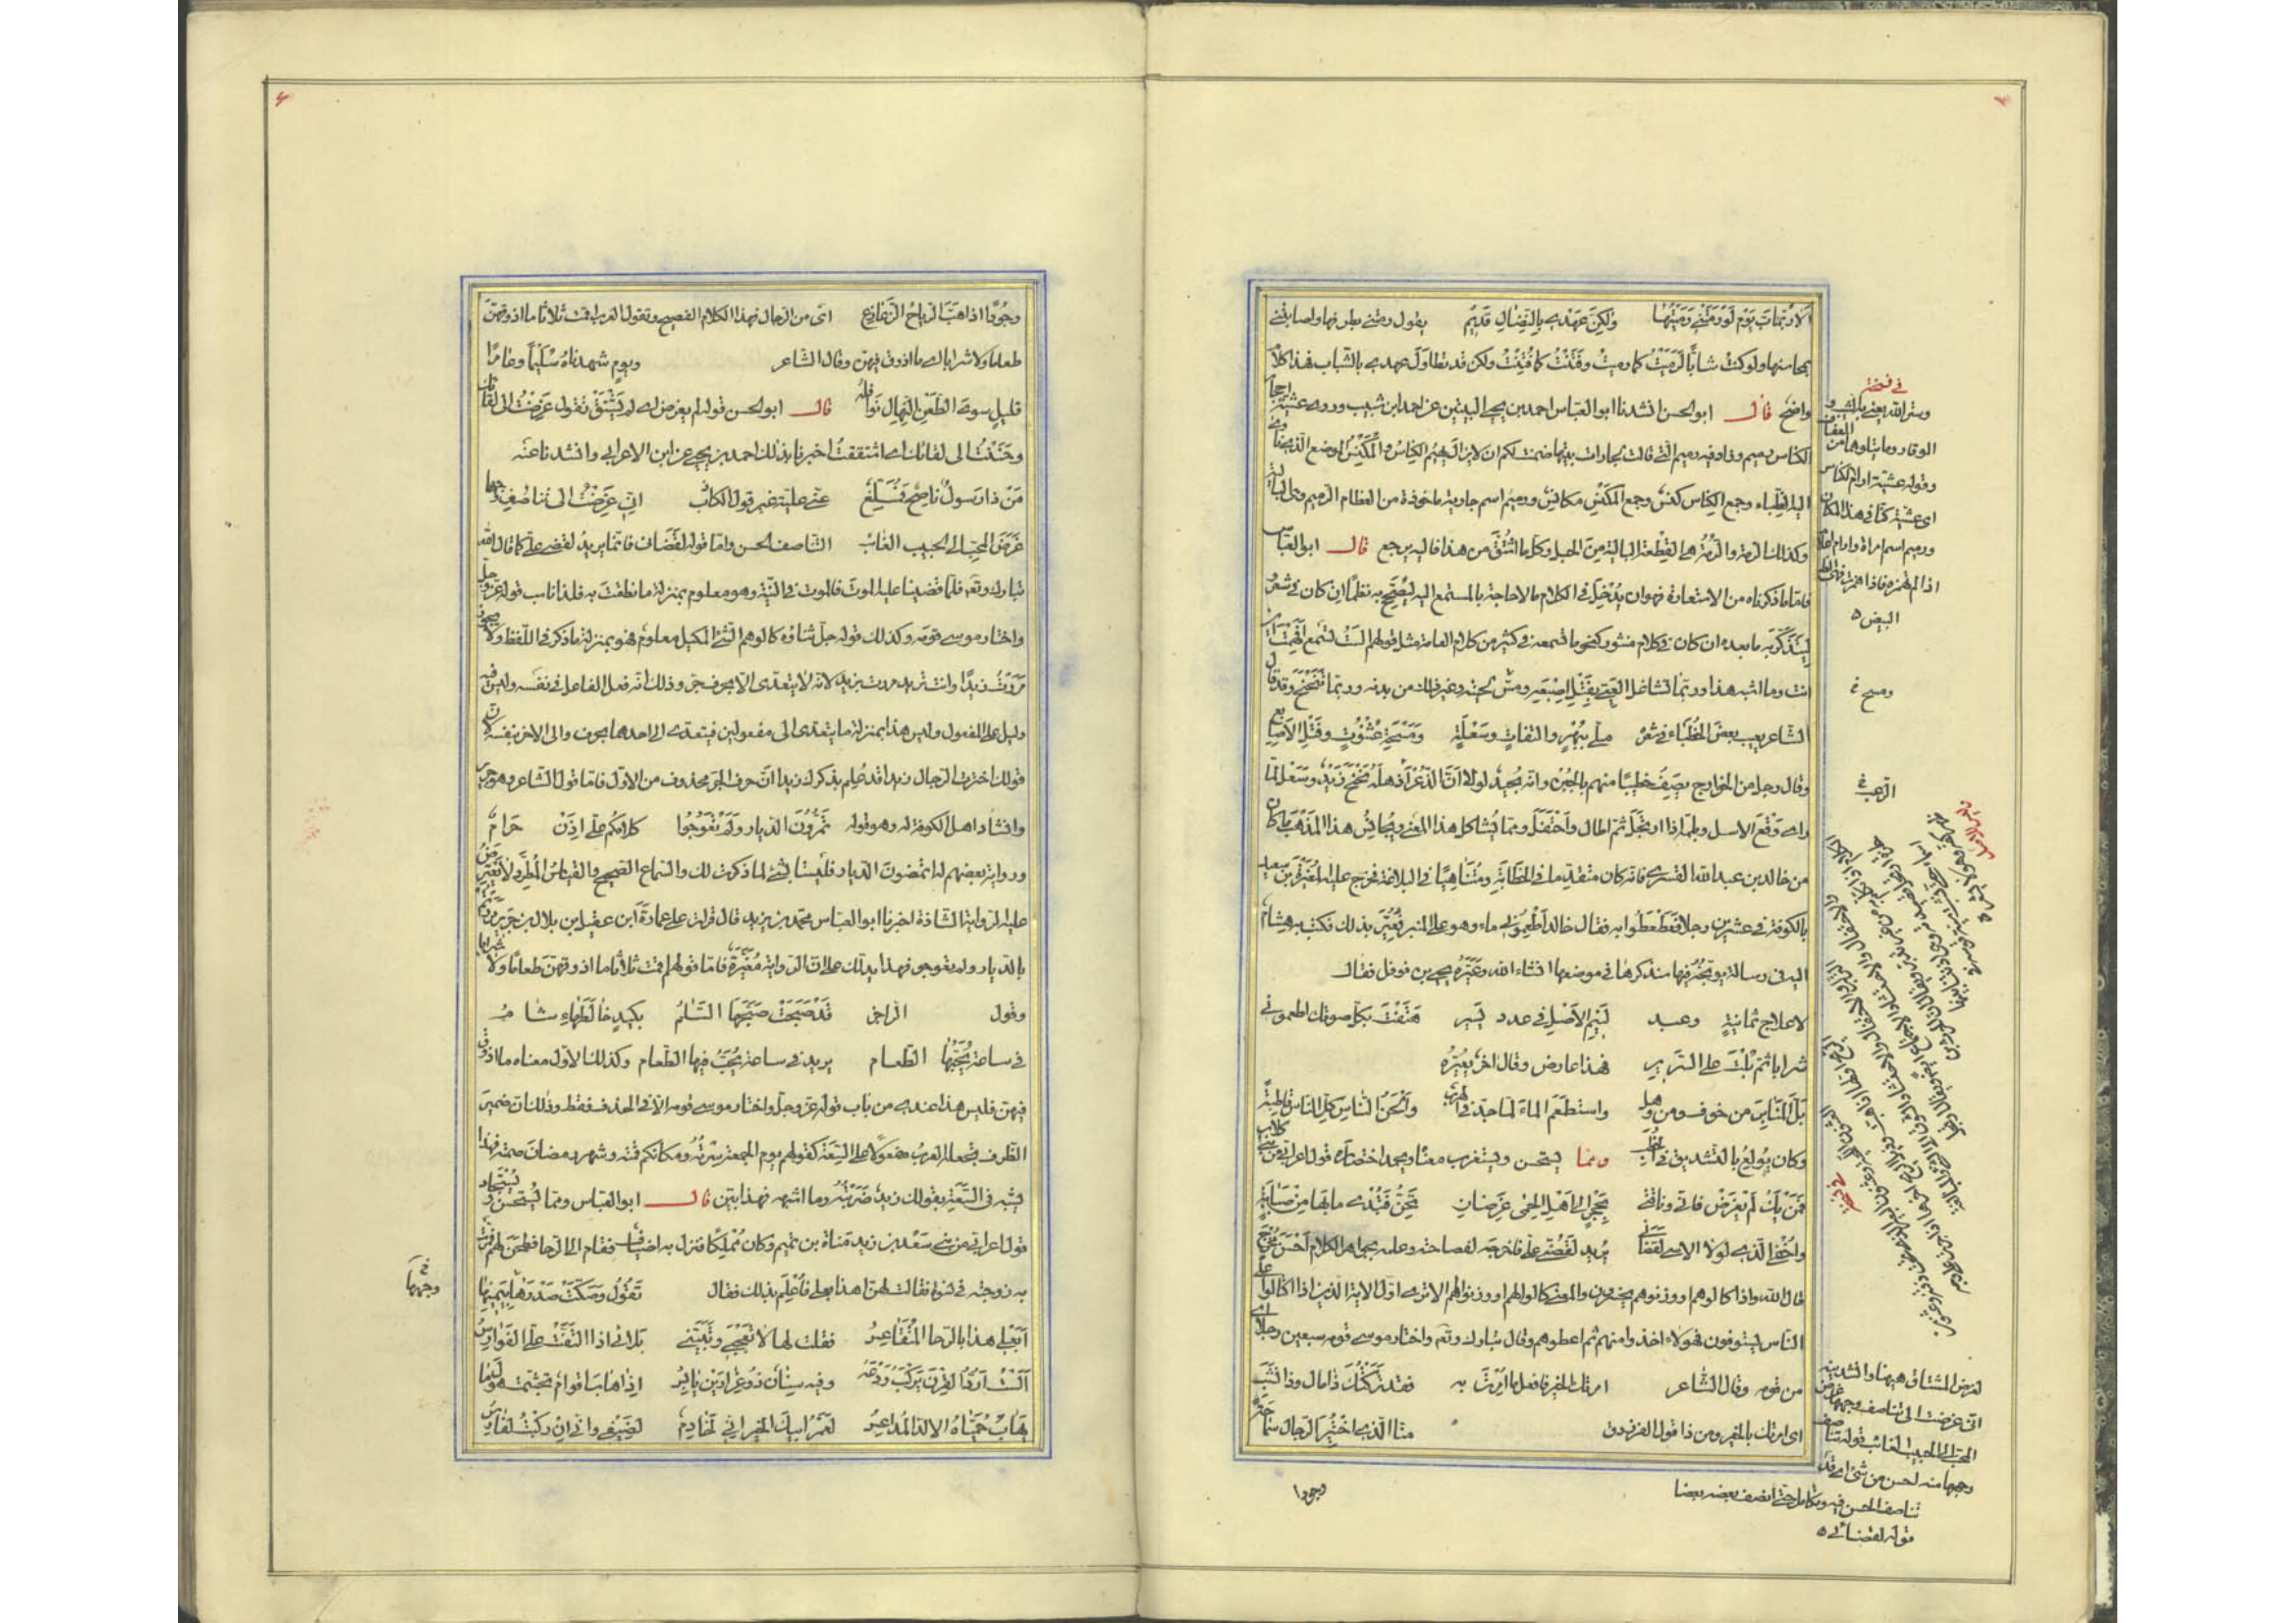 الا رب يوم لو رمتني رميتها ولكن عهدي بالنضال قديم يقول رمتني بطرفها واصابتني
بمحاسنها ولو كنت شابا لرميت كما رميت وفتنت كما فتنت ولكن قد تطاول عهدي بالشباب فهذا كلام
واضح قال ابو الحسن انشدنا ابو العباس احمد بن يحيى البيتين عن احمد ابن شبيب وروى عشية احجار
الكناس رميم وزاد فيه رميم التي قالت لجارات بيتها ضمنت لكم ان لا يزال يهيم الكناس والمكنس الموضع الذي تأوى
اليه الظباء وجمع الكناس كنس وجمع المكنس مكانس ورميم اسم جارية ماخوذة من العظام الرميم وهي البالية
وكذلك الرمة والرمة هي القطعة البالية من الحبل وكل ما اشتق من هذا فاليه يرجع قال ابو العباس
فاما ما ذكرناه من الاستعانة فهو ان يدخل في الكلام ما لا حاجة بالمستمع اليه ليصحح به نظما ان كان في شعر
ليتذكر به ما بعده ان كان في كلام منثور كنحو ما تسمعه في كثير من كلام العامة مثل قولهم الست تسمع افهمت اين
انت وما اشبه هذا وربما تشاغل العيي بفتل اصبعه ومس لحيته وغير ذلك من بدنه وربما تنحنح وقد قال
الشاعر يعيب بعض الخطباء في شعر ملي ببهر والتفات وسعلة ومسحة عثنون وفتل الاصابع
وقال رجل من الخوارج يصف خطيبا منهم بالجبن وانه مجيد لولا ان الذعر اذهله نحنح زيد وسعل لما
راى وقع الاسل ويلمه اذا ارتجل ثم اطال واحتفل ومما يشاكل هذا المعنى ويجانس هذا المذهب ما كان
من خالد بن عبد الله القسري فانه كان متقدما في الخطابة ومتناهيا في البلاغة فخرج عليه المغيرة بن سعيد
بالكوفة في عشرين رجلا فعطعطوا به فقال خالد اطعموني ماء وهو على المنبر فعير بذلك فكتب به هشام
اليه في رسالة يوبخه فيها سنذكرها في موضعها انشاء الله وعيره يحيى بن نوفل فقال
لاعلاج ثمانية وعبد لئيم الاصل في عدد يسير هتفت بكل صوتك اطعموني
شرابا ثم بلت على السرير فهذا عارض وقال اخر يعيره
بل المنابر من خوف ومن وهل واستطعم الماء لما جد في الهرب والحن الناس كل الناس قاطبة
وكان يولع بالتشديق في الخطب ومما يستحسن ويستغرب معناه ويحمد اختصاره قول اعرابي من بني كلاب
فمن يك لم يغرض فاني وناقتي بحجر الى اهل الحمى غرضان تحن فتبدى ما بها من صبابة
واخفي الذي لولا الاسى لقضاني يريد لقضى علي فاخرجه لفصاحته وعلمه بجواهر الكلام احسن مخرج
قال الله واذا كالوهم او وزنوهم يخسرون والمعنى كالوا لهم او وزنوا لهم الا ترى اول الاية الذين اذا اكتالوا على
الناس يستوفون فهؤلاء اخذوا منهم ثم اعطوهم وقال تبارك وتعه واختار موسى قومه سبعين رجلا اي
من قومه وقال الشاعر امرتك الخير فافعل ما امرت به فقد تركتك ذا مال وذا نشب
اى امرتك بالخير ومن ذا قول الفرزدق منا الذي اختير الرجال سماحة
وجودا
وستر الله يعني به الشيب و
الوقار وما يتناوهما من العفاف
وقوله عشية ارام الكناس
اى عشية كنا في هذا المكان
ورميم اسم امراة
البيض ه
ومسح خ
الرعب خ
لغرض المشتاق هيهنا وانشد بيته
اني غرضت الى تناصف وجهها غرض
المحب الى الحبيب الغائب قوله تناصف
تناصف الحسن فيه وتكامل حتى انصف بعضه بعضا
قوله لقضاني ه
وجودا اذا هب الرياح الزعازع اى من الرجال فهذا الكلام الفصيح وتقول العرب اقمت ثلاثا ما اذوقهن
طعاما ولا شرابا اى ما اذوق فيهن وقال الشاعر ويوم شهدناه سليما وعامرا
قليل سوى الطعن النهال نوافله قال ابو الحسن قوله لم يغرض اى لم يشتق تقول غرضت الى لقائك
وحننت الى لقائك اى اشتقت اخبرنا بذلك احمد بن يحيى عن ابن الاعرابي وانشدنا عنه
من ذا رسول ناصح فمبلغ عني علية غير قول الكاذب اني غرضت الى تناصف وجهها
غرض المحب الى الحبيب الغائب التناصف الحسن واما قوله لقضاني فانما يريد لقضى علي كما قال الله
تبارك وتعه فلما قضينا عليه الموت فالموت في النية وهو معلوم بمنزلة ما نطقت به فلذا ناسب قوله عز وجل
واختار موسى قومه وكذلك قوله جل ثناؤه كالوهم الشئ المكيل معلوم فهو بمنزلة ما ذكر في اللفظ ولا يجوز
مررت زيدا وانت تريد مررت بزيد لانه لا يتعدى الا بحرف جر وذلك انه فعل الفاعل في نفسه وليس فيه
دليل على المفعول وليس هذا بمنزلة ما يتعدى الى مفعولين فيتعدى الى احدهما بحرف والى الاخر بنفسه لان
قولك اخترت الرجال زيدا قد علم بذكرك زيدا ان حرف الجر محذوف من الاول فاما قول الشاعر وهو جرير
وانشاد اهل الكوفة له وهو قوله تمرون الديار ولم تعوجوا كلامكم علي اذن حرام
ورواية بعضهم له اتمضون الديار فليستا بشئ لما ذكرت لك والسماع الصحيح والقياس المطرد لا تعترض
عليه الرواية الشاذة اخبرنا ابو العباس محمد بن يزيد قال قرات على عمارة ابن عقيل بن بلال بن جرير مررتم
بالديار ولم تعوجوا فهذا يدلك على ان الرواية مغيرة فاما قولهم اقمت ثلاثا ما اذوقهن طعاما ولا شرابا
وقول الراجز قد صبحت صبحها السلام بكبد خالطها سنام
في ساعة يحبها الطعام يريد في ساعة يحب فيها الطعام وكذلك الاول معناه ما اذوق
فيهن فليس هذا عندي من باب قوله عز وجل واختار موسى قومه الا في الحذف فقط وذلك ان ضمير
الظرف تجعله العرب مفعولا على السعة كقولهم يوم الجمعة سرته ومكانكم قمته وشهر رمضان صمته فهذا
يشبه في السعة بقولك زيد ضربته وما اشبه فهذا بين قال ابو العباس ومما يستحسن ويستجاد
قول اعرابي من بني سعد بن زيد مناة بن تميم وكان مملكا فنزل به اضياف فقام الى الرحا فطحن لهم فمرت
به زوجته في نسوة فقالت لهن اهذا بعلي فاعلم بذلك فقال تقول وصكت صدرها بيمينها
ابعلي هذا بالرحا المتقاعس فقلت لها لا تعجبي وتبيني بلائي اذا التفت علي الفوارس
الست ارد القرن يركب ردعه وفيه سنان ذو غرارين يابس اذا هاب اقوام تجشمت هول ما
يهاب حمياه الالد المداعس لعمر ابيك الخير اني لخادم لضيفي واني ان ركبت لفارس
وجهها خ